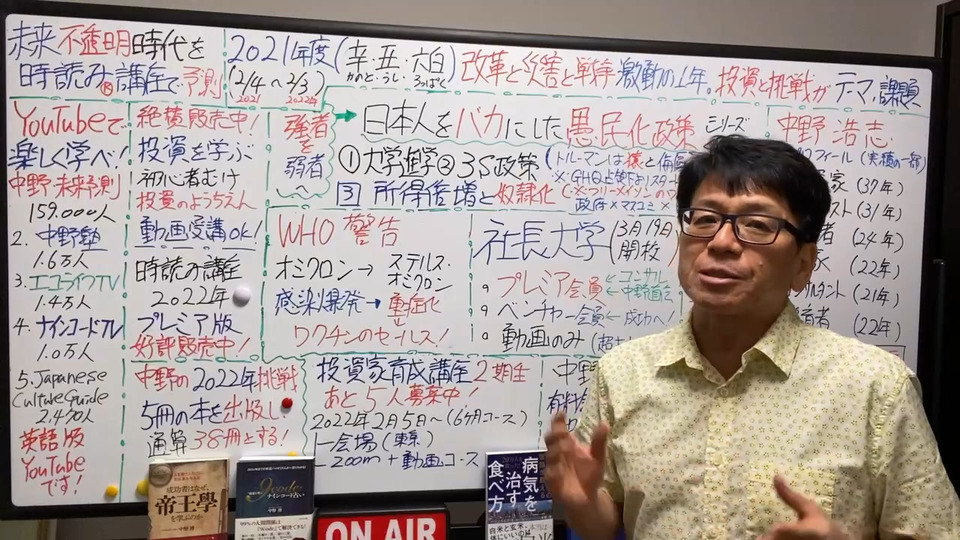 未来不透明時代を
時読み®講座で予測
2021年度(辛・丑・六白)改革と災害と戦争激動の1年。投資と挑戦がテーマ、課題
かのと・うし・ろっぱく
(2/4～2/3)
2021 2022年
YouTubeで
楽しく学べ!
中野未来予測
159.000人
2. 中野塾
1.6万人
3. エコライフTV
1.4万人
4. ナインコードTV
1.0万人
5. Japanese
Culture Guide
英語版
YouTube
です!
絶賛販売中!
投資を学ぶ
初心者むけ
投資のようちえん
動画受講OK!
時読み講座
2022年
プレミア版
好評販売中!
中野の2022年挑戦
5冊の本を出版し
通算38冊とする!
強者を
弱者へ
日本人をバカにした愚民化政策シリーズ
①大学進学②3S政策
③所得倍増と奴隷化
政府×マスコミ×
WHO警告
オミクロン→ステルス・オミクロン
感染爆発→重症化
ワクチンのセールス!
社長大学(3月19日)
開校
プレミア会員←コンサル
←中野直伝
ベンチャー会員←成功へ!
動画のみ
投資家育成講座2期生
あと5人募集中!
2022年2月5日～(6ヶ月コース)
会場(東京)
zoom+動画コース
中野浩志
ロフィール(実積の一部)
(37年)
スト(31年)
(24年)
(22年)
ルタント(21年)
(22年)
中野
成功者はなぜ、
帝王學
を学ぶのか
中野 博
9code
ナインコード占い
中野 博
ON AIR
病気を
治す
食べ方
白米と玄米、
体にいいのは